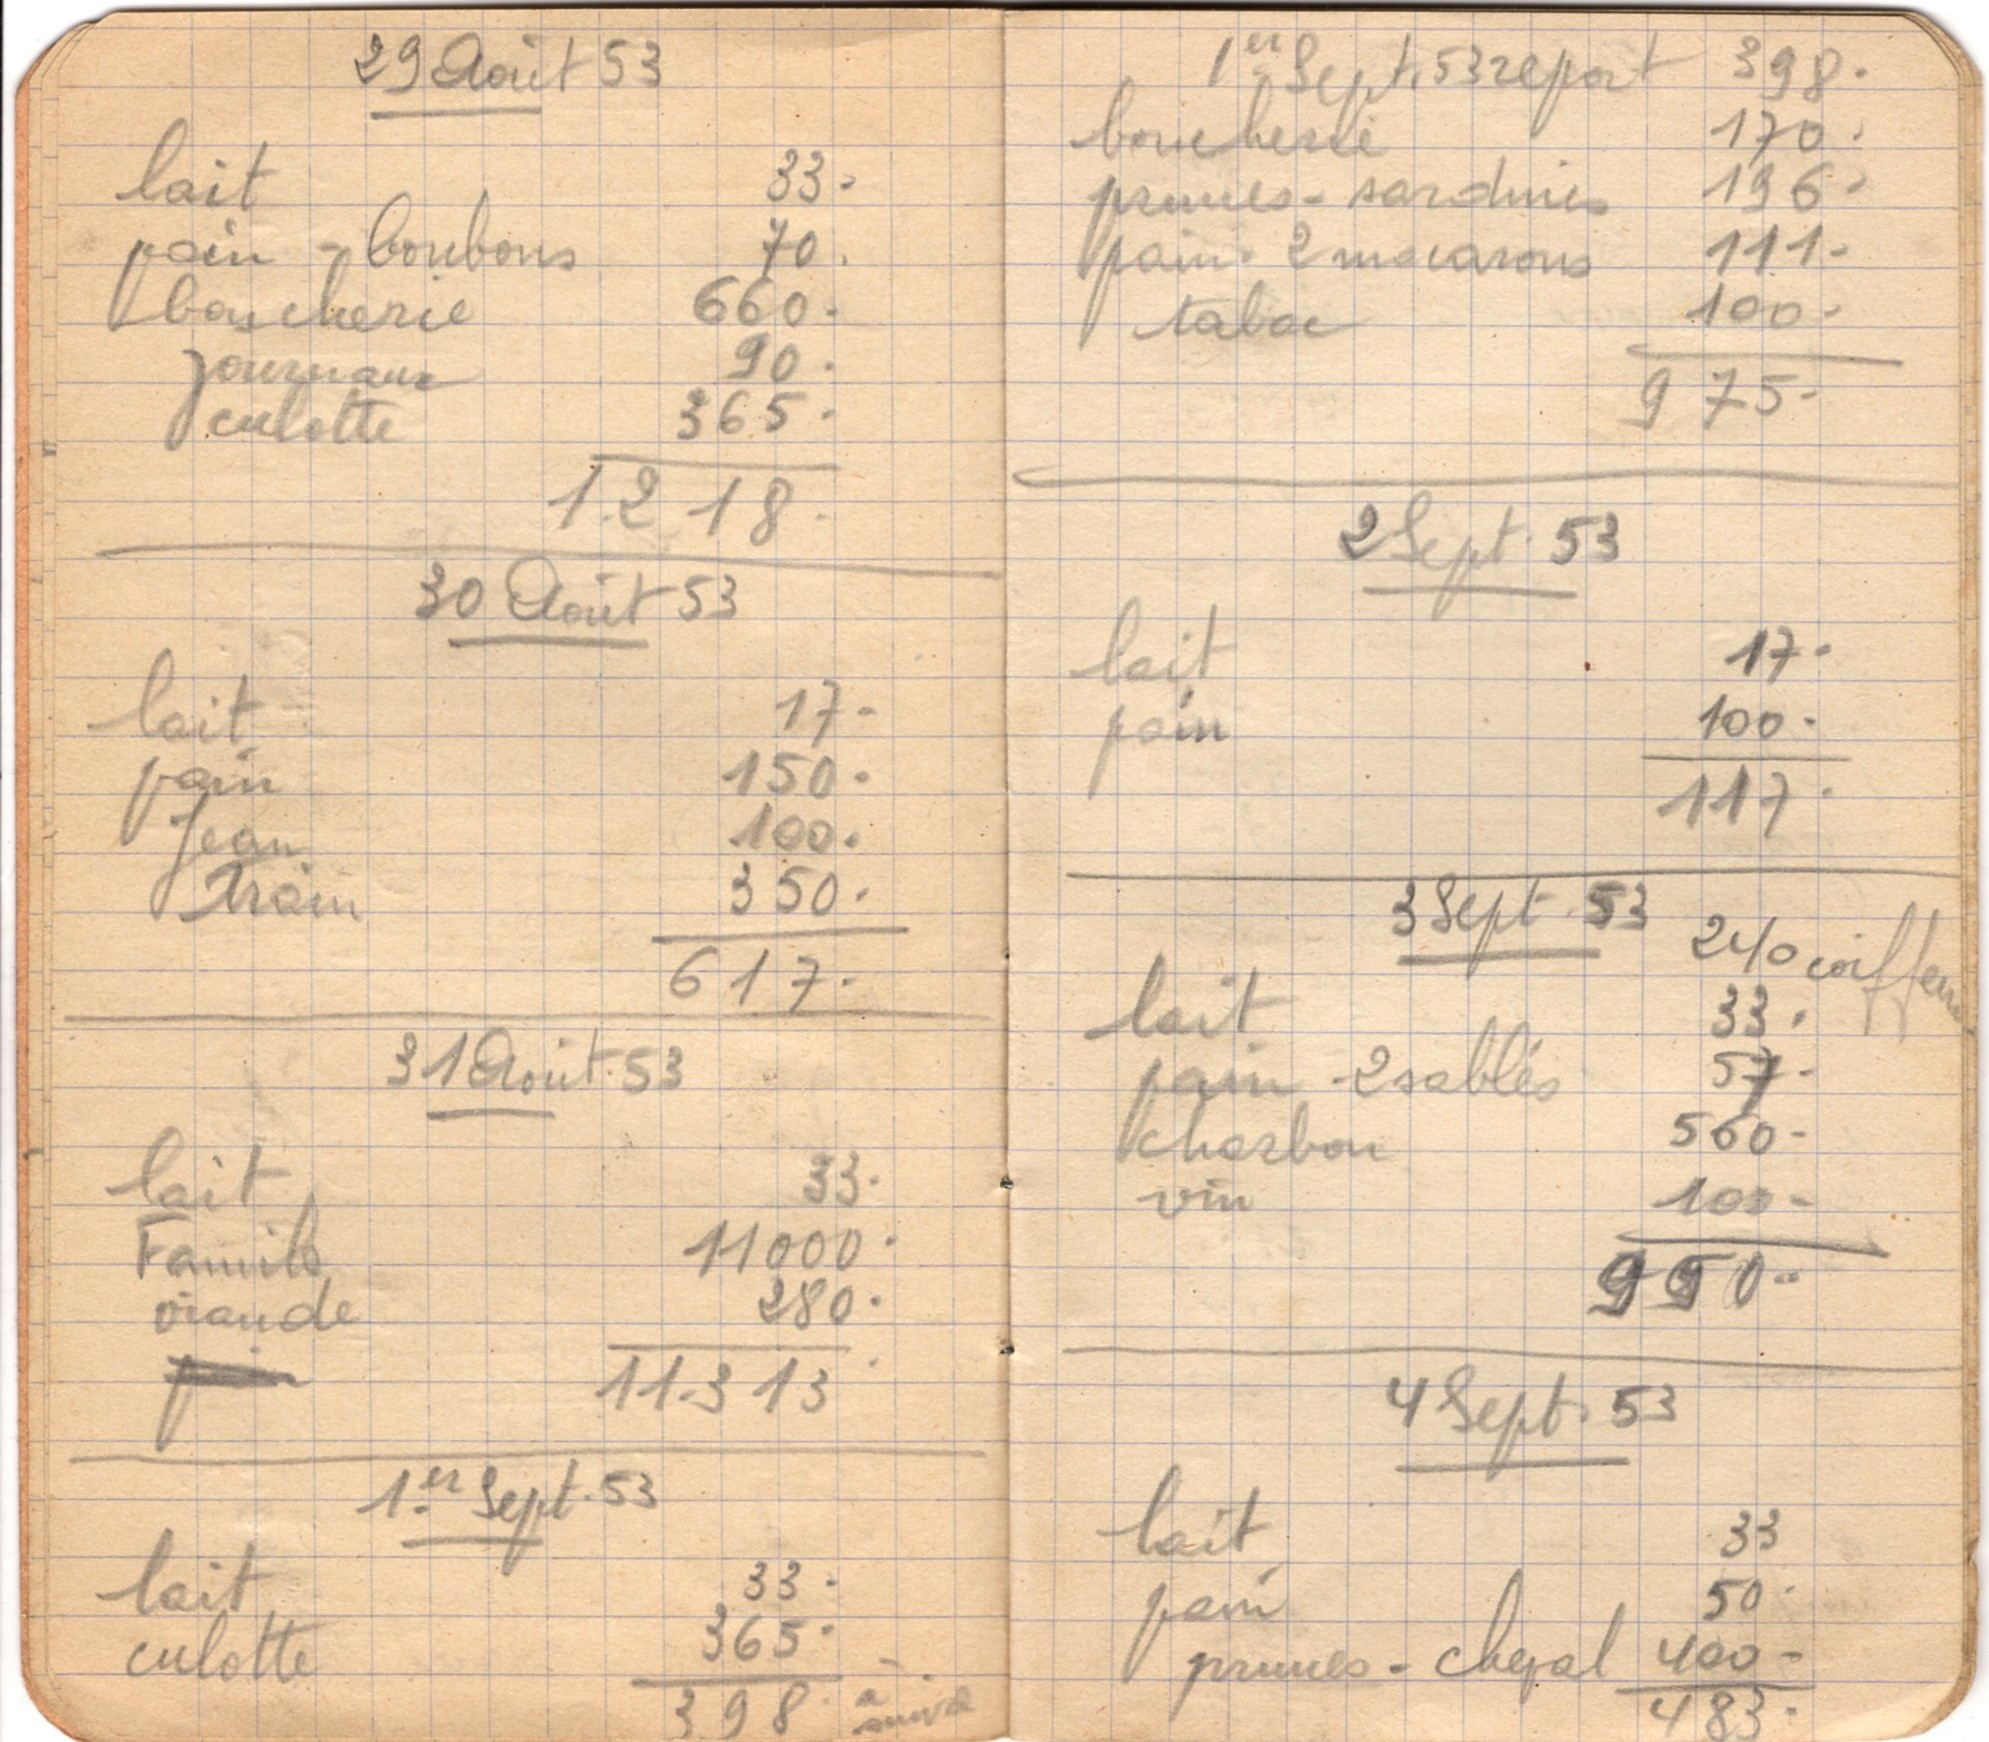 29 Août 53
lait 33.
pain - bonbons 70.
boucherie 660.
journaux 90.
culotte 365.
1.218.
30 Août 53
lait 17.
pain 150.
Jean 100.
train 350.
617.
31 Août 53
lait 33.
Famille 11000.
viande 280.
11.313
1er Sept. 53
lait 33.
culotte 365.
398. à suivre
1er Sept. 53 report 398.
boucherie 170.
prunes - sardines 196.
pain - 2 macarons 111.
tabac 100.
975.
2 Sept. 53
lait 17.
pain 100.
117.
3 Sept. 53
240 coiffeur
lait 33.
pain - 2 sablés 57.
charbon 560.
vin 100.
990.
4 Sept. 53
lait 33
pain 50.
prunes - cheval 400.
483.